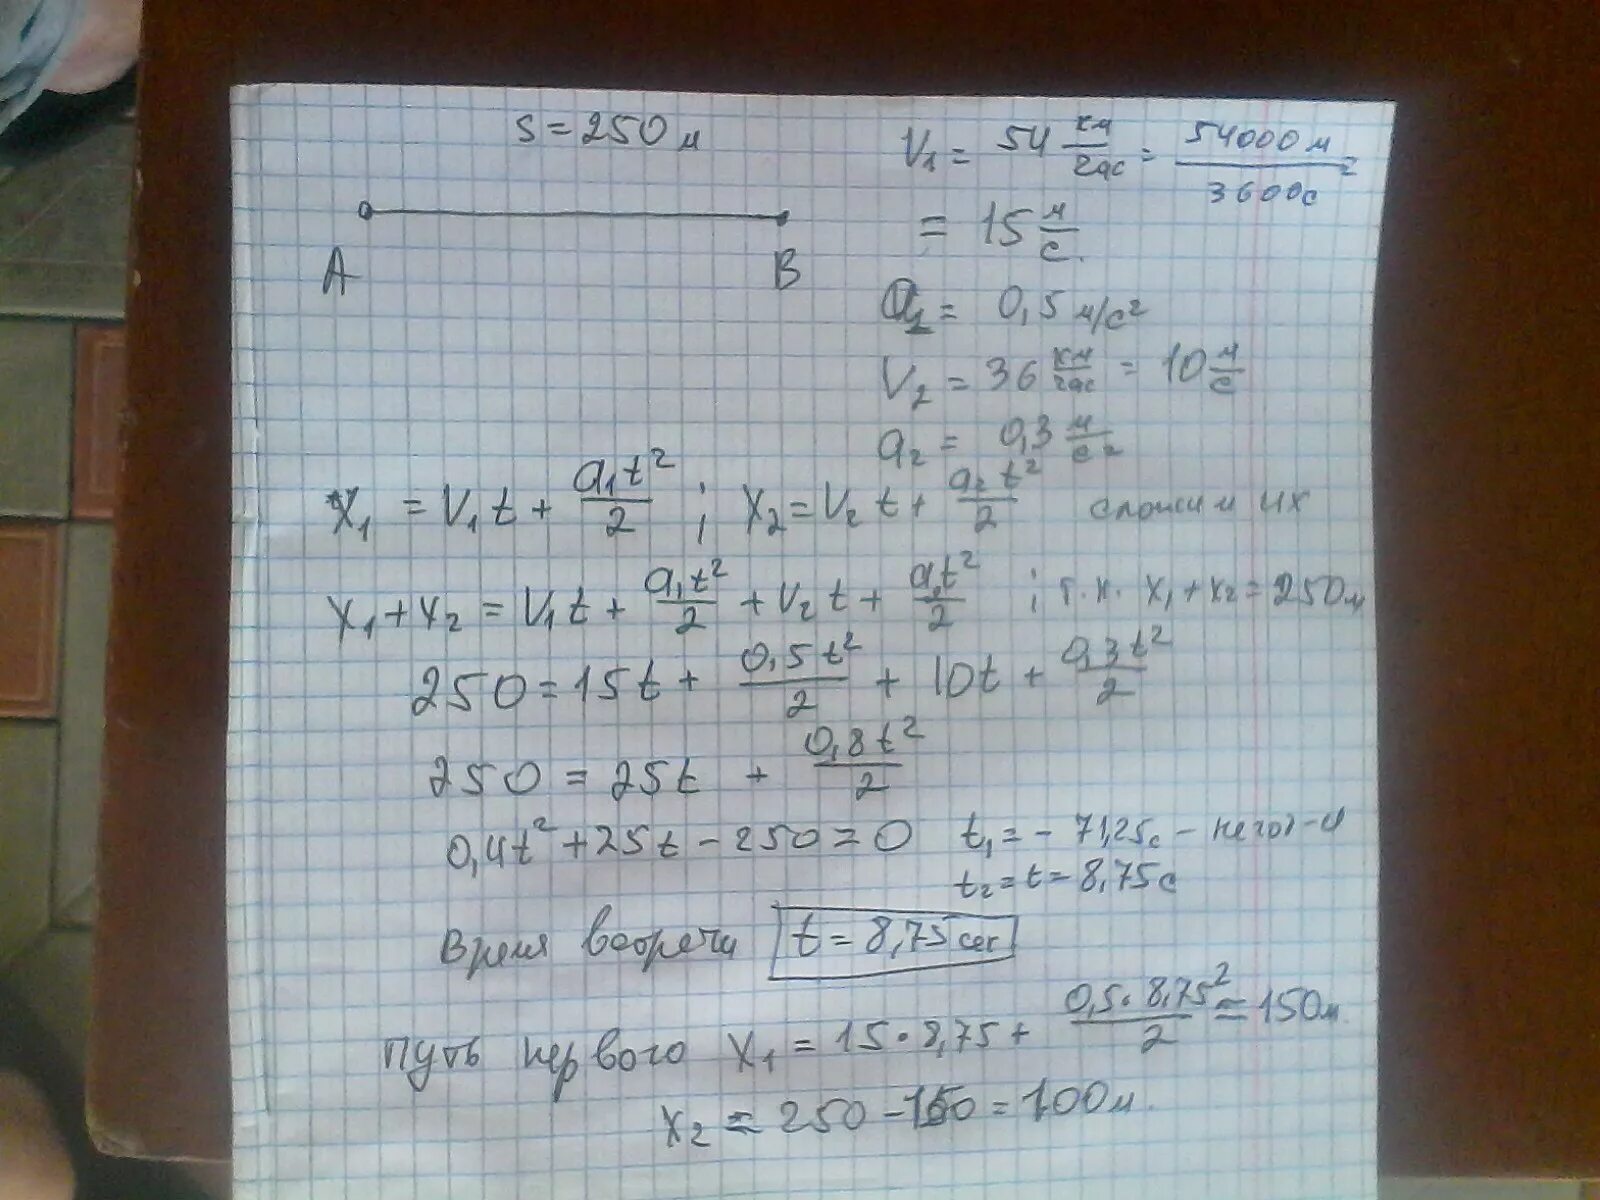 s = 250 м
A B
V₁ = 54 км/час = 54000 м / 3600с =
= 15 м/с.
a₁ = 0,5 м/с²
V₂ = 36 км/час = 10 м/с
a₂ = 0,3 м/с²
X₁ = V₁t + a₁t²/2 ; X₂ = V₂t + a₂t²/2 сложим их
X₁ + X₂ = V₁t + a₁t²/2 + V₂t + a₂t²/2 ; т.к. X₁ + X₂ = 250м
250 = 15t + 0,5t²/2 + 10t + 0,3t²/2
250 = 25t + 0,8t²/2
0,4t² + 25t - 250 = 0
t₁ = - 71,25с - не год-и
t₂ = t = 8,75с
Время встречи t = 8,75 сек
Путь первого X₁ = 15 · 8,75 + 0,5 · 8,75²/2 ≈ 150м.
X₂ = 250 - 150 = 100м.